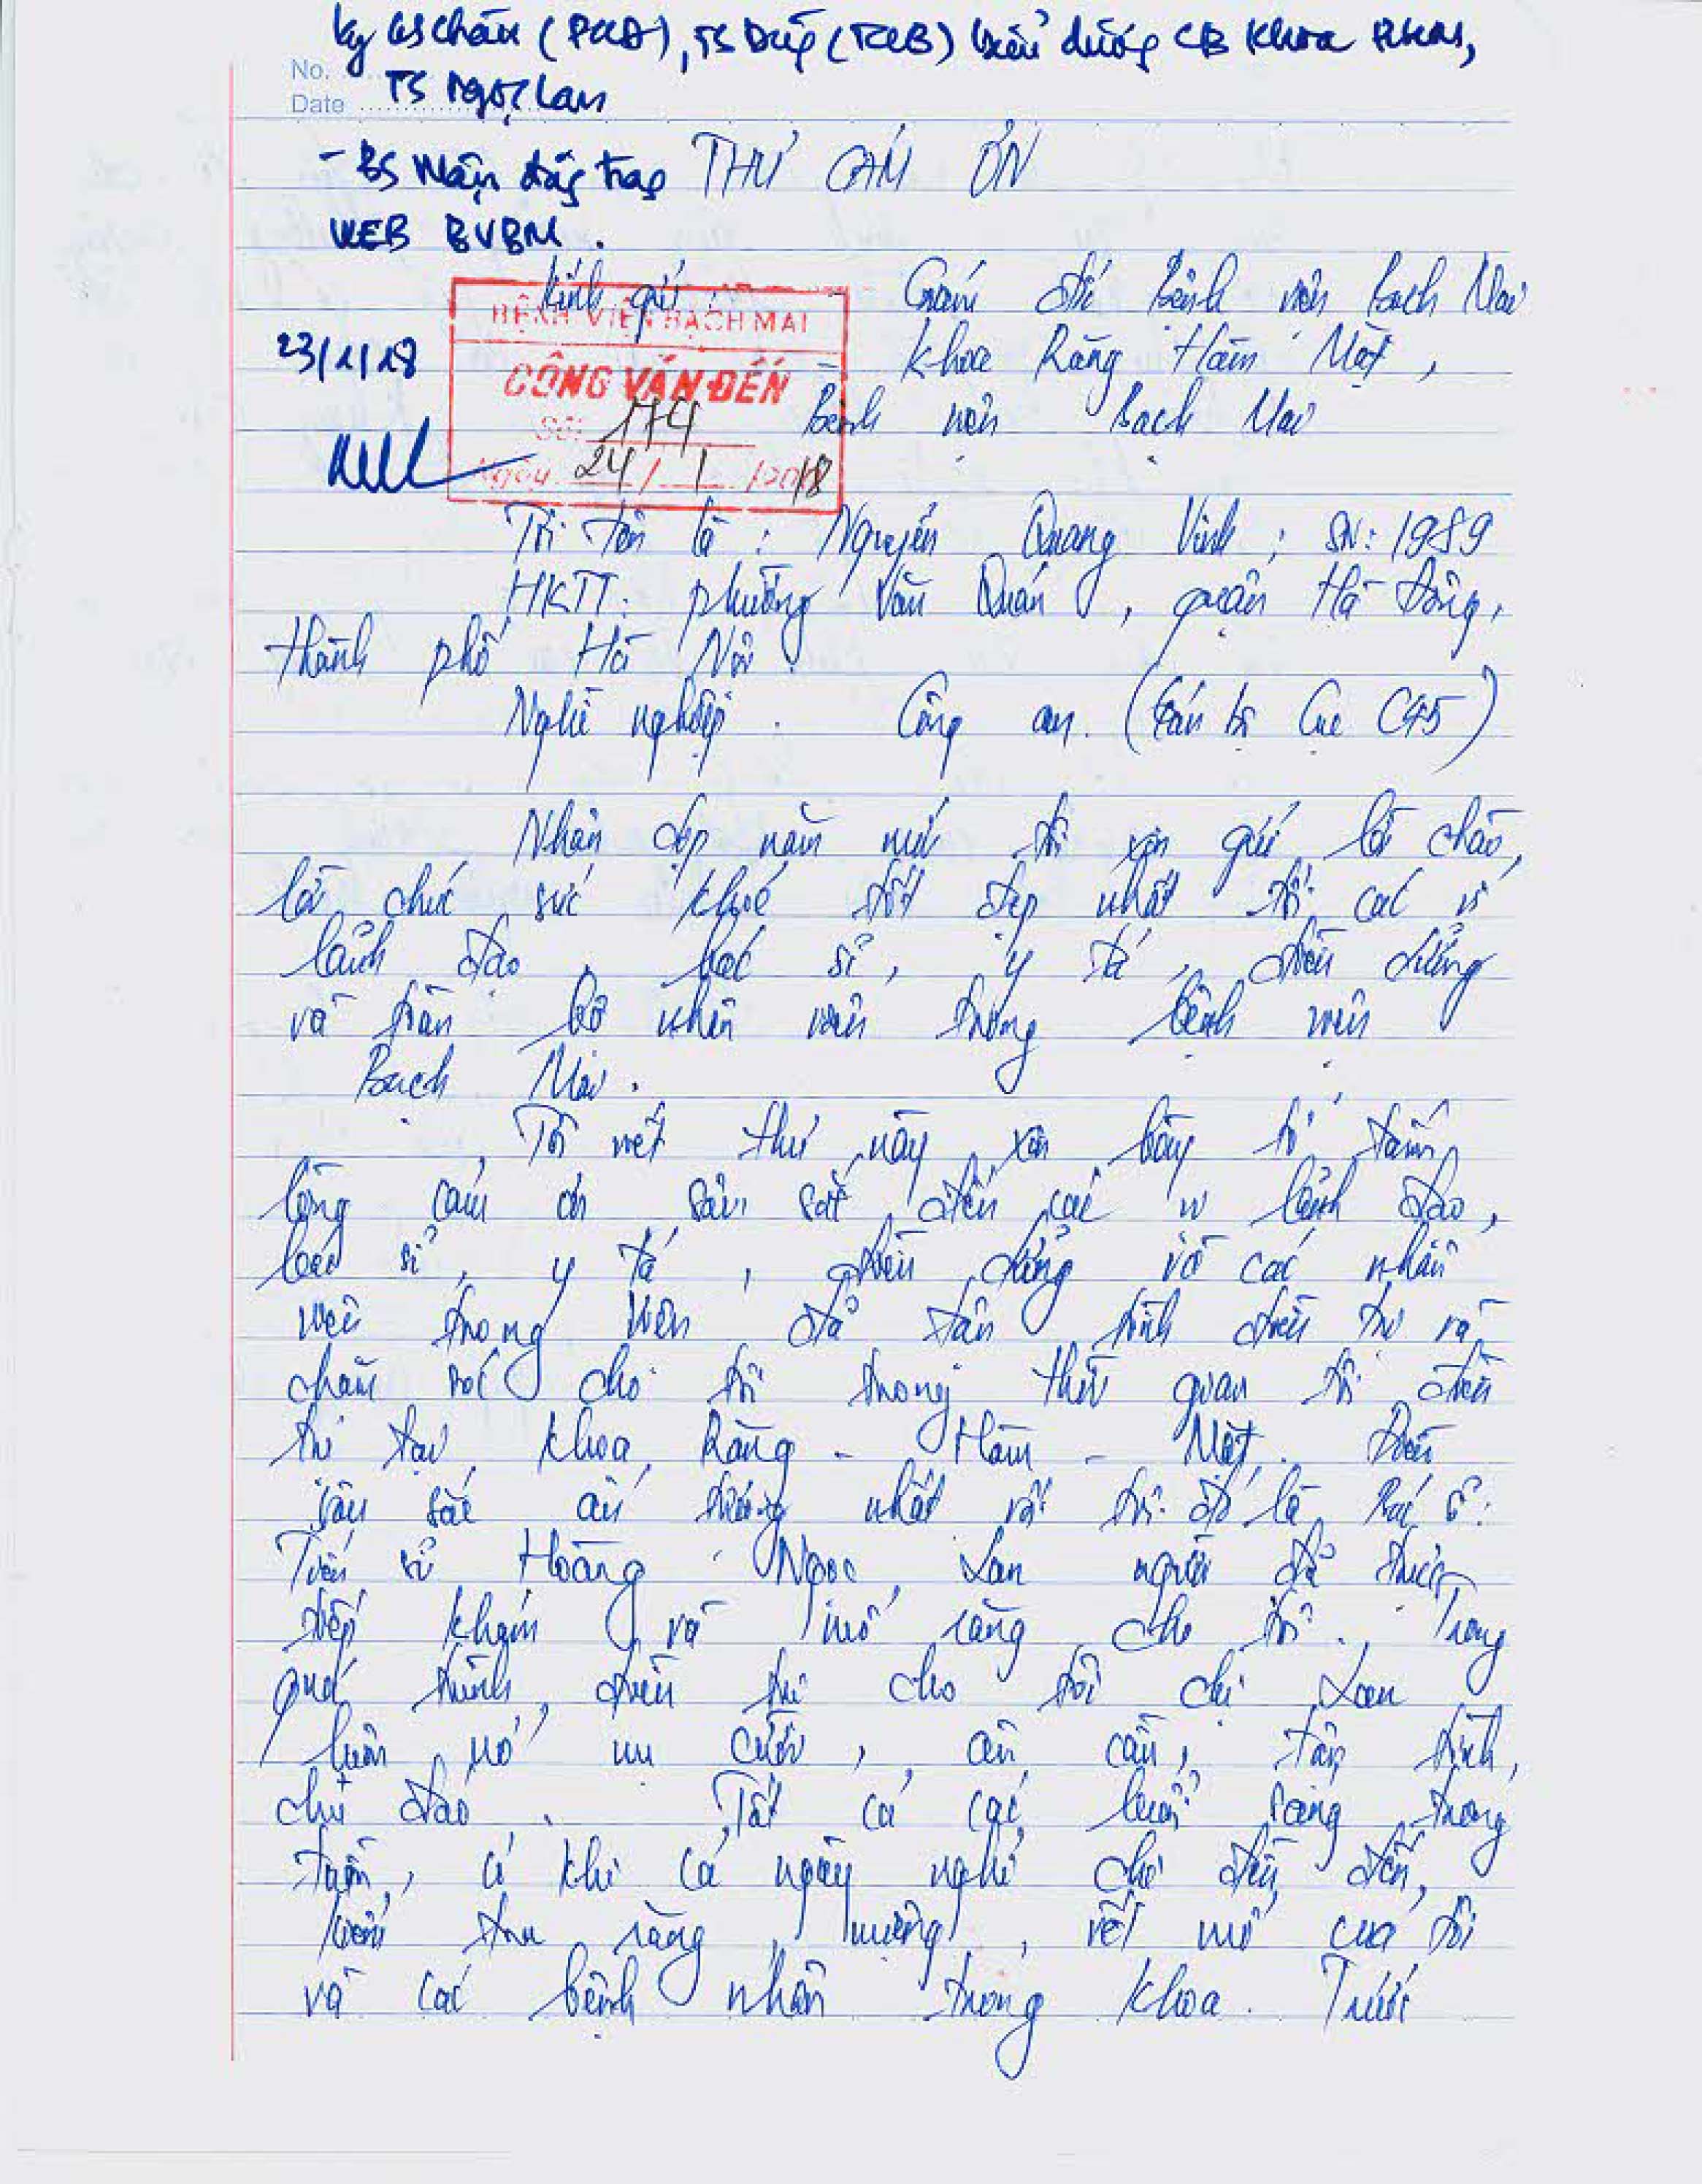 Kg GS Châu (PGĐ), TS Dũg (TCCB) biểu dương CB Khoa RHM,
No.
Date
TS Ngọc Lan
- BS Nhận đăng trag
WEB BVBM.
THƯ CẢM ƠN
Kính gửi : - Giám đốc Bệnh viện Bạch Mai
BỆNH VIỆN BẠCH MAI
CÔNG VĂN ĐẾN
Số: 174
Ngày 24 / 1 / 2018
23/1/18
- Khoa Răng Hàm Mặt,
Bệnh viện Bạch Mai
Tôi tên là : Nguyễn Quang Vinh ; SN: 1989
HKTT: phường Văn Quán, quận Hà Đông,
thành phố Hà Nội.
Nghề nghiệp : Công an. (Cán bộ Cục C45)
Nhân dịp năm mới tôi xin gửi lời chào,
lời chúc sức khoẻ tốt đẹp nhất tới các vị
lãnh đạo, bác sĩ, y tá, điều dưỡng
và toàn bộ nhân viên trong bệnh viện
Bạch Mai.
Tôi viết thư này xin bày tỏ tấm
lòng cảm ơn sâu sắc đến các vị lãnh đạo,
bác sĩ, y tá, điều dưỡng và các nhân
viên trong viện đã tận tình điều trị và
chăm sóc cho tôi trong thời gian tôi điều
trị tại khoa Răng - Hàm - Mặt. Điều
sâu sắc ấn tượng nhất với tôi đó là Bác sĩ:
Tiến sĩ Hoàng Ngọc Lan người đã trực
tiếp khám và mổ răng cho tôi. Trong
quá trình điều trị cho tôi chị Lan
luôn nở nụ cười, ân cần, tận tình,
chu đáo. Tất cả các buổi sáng trong
tuần, có khi cả ngày nghỉ chị đều đến,
kiểm tra răng, miệng, vết mổ của tôi
và các bệnh nhân trong khoa. Trước